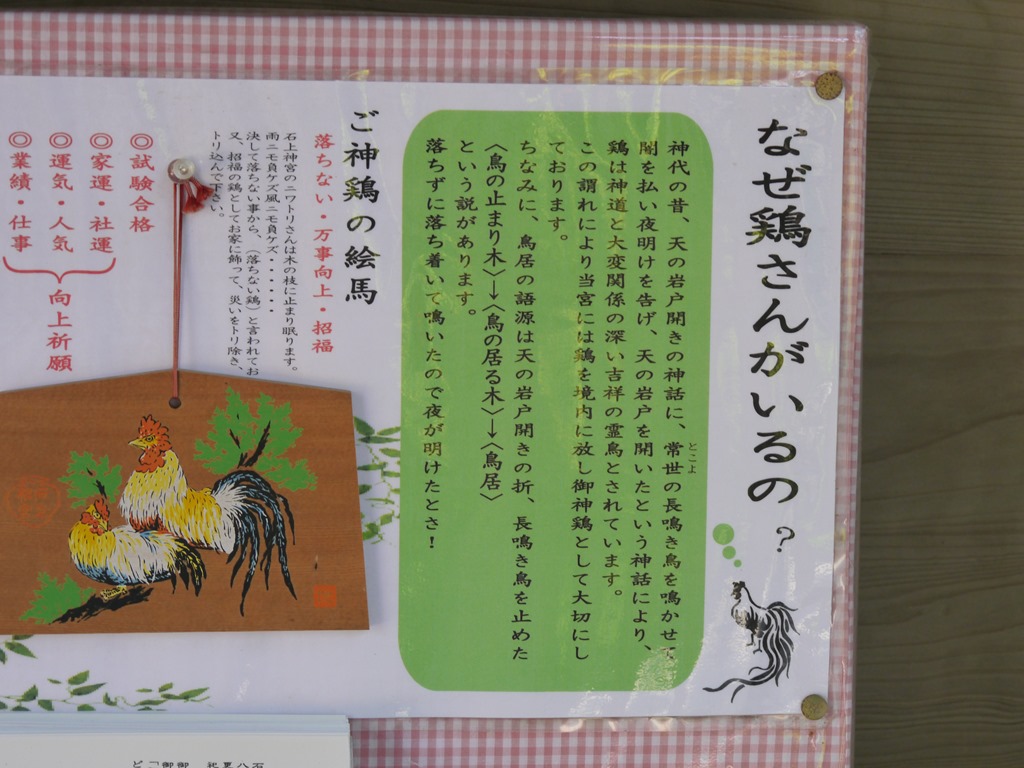 なぜ鶏さんがいるの?
神代の昔、天の岩戸開きの神話に、常世の長鳴き鳥を鳴かせて
とこよ
闇を払い夜明けを告げ、天の岩戸を開いたという神話により、
鶏は神道と大変関係の深い吉祥の霊鳥とされています。
この謂れにより当宮には鶏を境内に放し御神鶏として大切にし
ております。
ちなみに、鳥居の語源は天の岩戸開きの折、長鳴き鳥を止めた
〈鳥の止まり木〉→〈鳥の居る木〉→〈鳥居〉
という説があります。
落ちずに落ち着いて鳴いたので夜が明けたとさ!
ご神鶏の絵馬
落ちない・万事向上・招福
石上神宮のニワトリさんは木の枝に止まり眠ります。
雨ニモ負ケズ風ニモ負ケズ・・・・・
決して落ちない事から、(落ちない鶏)と言われてお
又、招福の鶏としてお家に飾って、災いをトリ除き、
トリ込んで下さい。
◎試験合格
◎家運・社運
◎運気・人気
◎業績・仕事
向上祈願